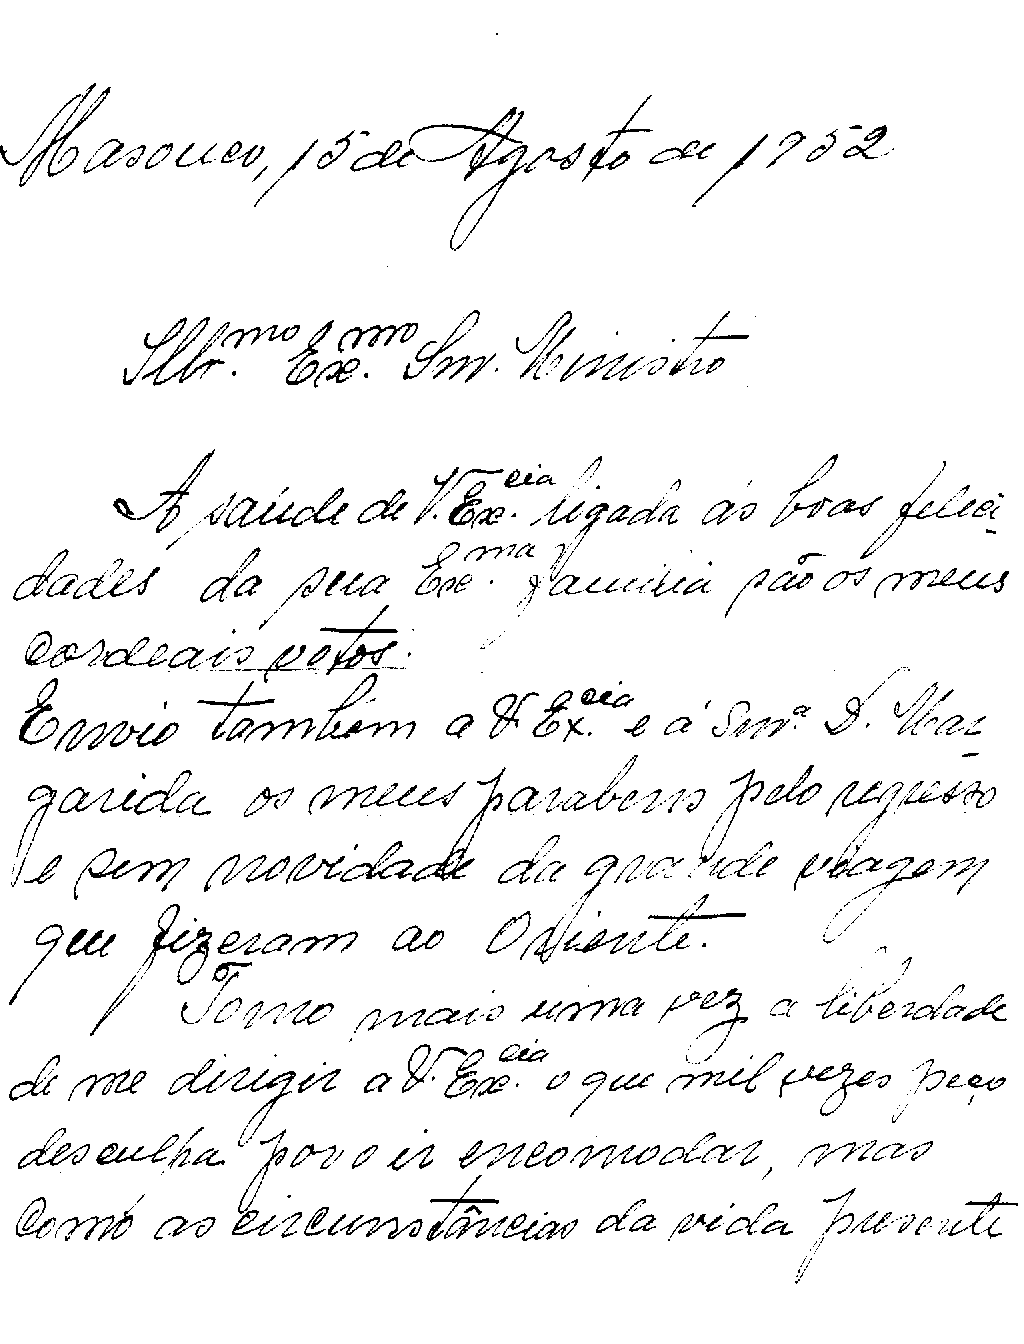 Masouco, 15 de Agosto de 1952
Ilbr.mo Ex.mo Snr. Ministro
A saúde de V. Ex.cia ligada ás boas felici-
dades da sua Ex.ma familia são os meus
cordeais votos.
Envio tambêm a V. Ex.cia e á Snr.a D. Mar-
garida os meus parabens pelo regresso
e sem novidade da grande viagem
que fizeram ao Oriente.
Tomo mais uma vez a liberdade
de me dirigir a V. Ex.cia o que mil vezes peço
desculpa por o ir encomodar, mas
como as circunstâncias da vida presente